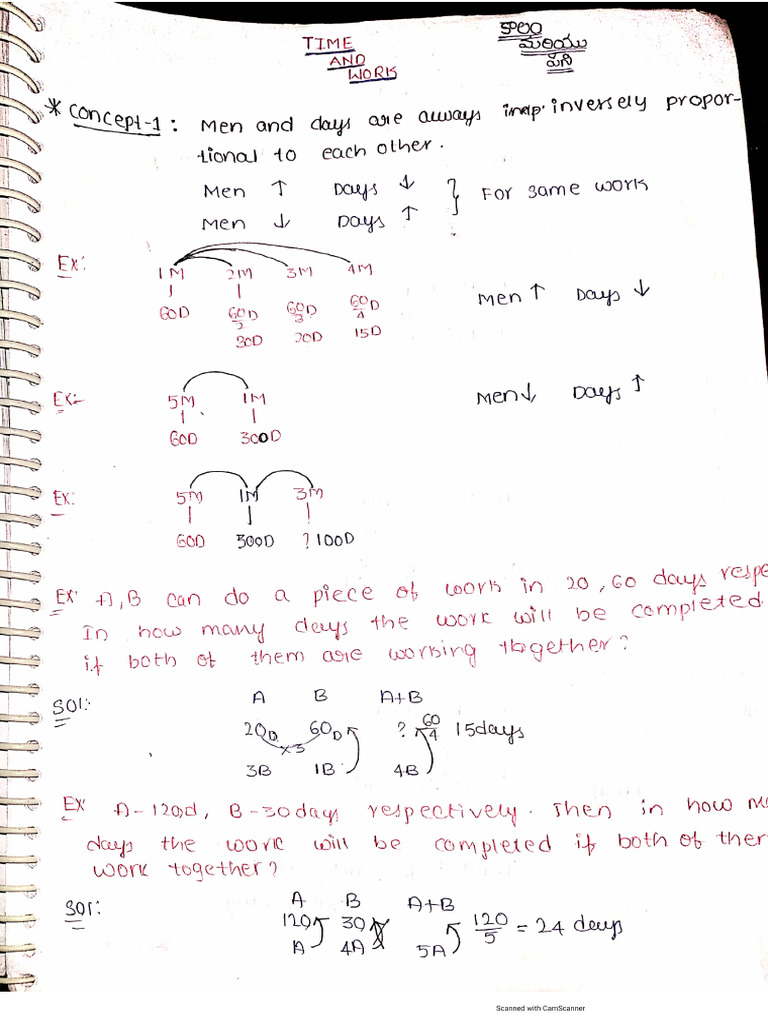 TIME
AND
WORK
కాలం
మరియు
పని
* Concept-1: Men and days are always inversely propor-
tional to each other.
Men ↑ Days ↓
Men ↓ Days ↑ } For same work
Ex:
1M 2M 3M 4M
60D 60/2D 60/3D 60/4D
30D 20D 15D
Men ↑ Days ↓
Ex:-
5M 1M
60D 300D
Men ↓ Days ↑
Ex:
5M 1M 3M
60D 300D ? 100D
Ex: A, B can do a piece of work in 20, 60 days respe
In how many days the work will be completed
if both of them are working together?
Sol:-
A B A+B
20D 60D ? 60/4 15days
×3
3B 1B 4B
Ex A-120d, B-30days respectively. Then in how m
days the work will be completed if both of them
work together?
Sol:
A B A+B
120 30 120/5 = 24 days
A 4A 5A
Scanned with CamScanner